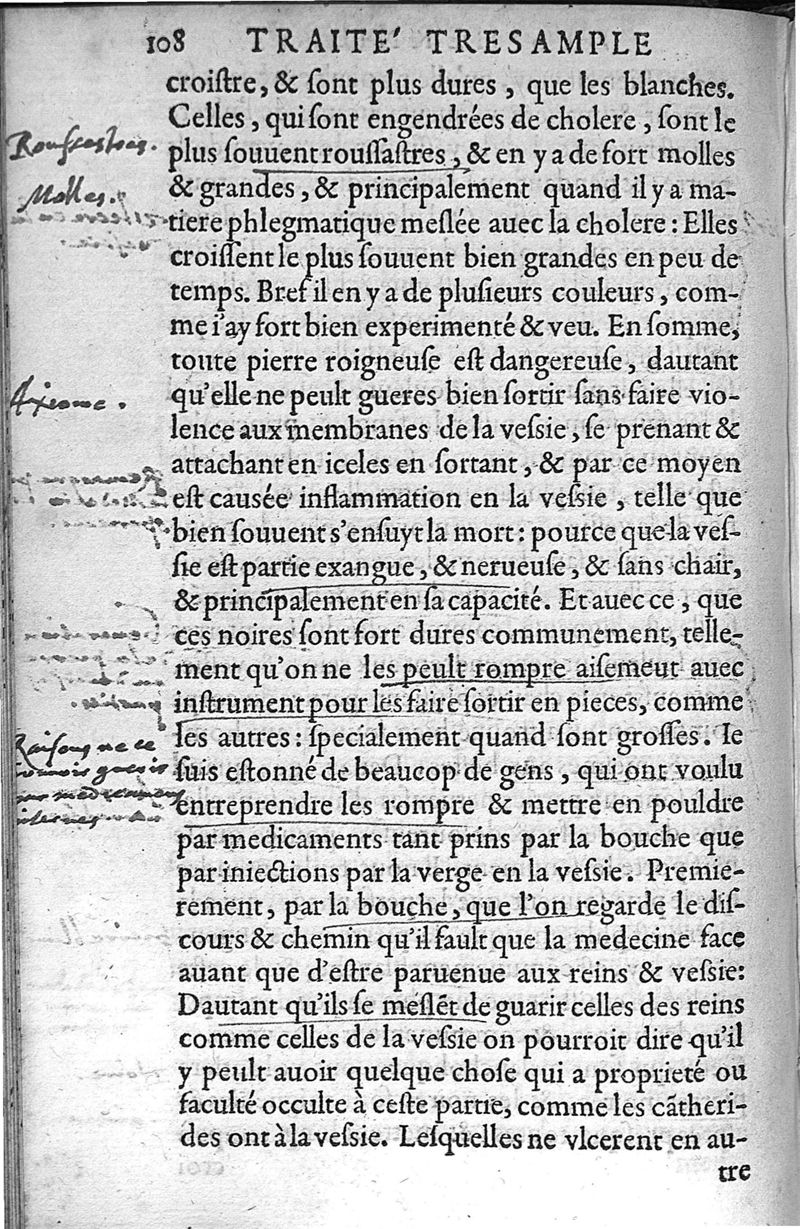 108 TRAITE' TRESAMPLE
croiſtre, & ſont plus dures, que les blanches.
Celles, qui ſont engendrées de cholere, ſont le
Rouſſaſtres.
plus ſouuent rouſſaſtres, & en y a de fort molles
Molles.
& grandes, & principalement quand il y a ma-
tiere phlegmatique meſlée auec la cholere: Elles
croiſſent le plus ſouuent bien grandes en peu de
temps. Bref il en y a de pluſieurs couleurs, com-
me i'ay fort bien experimenté & veu. En ſomme,
toute pierre roigneuſe eſt dangereuſe, dautant
Axiome.
qu'elle ne peult gueres bien ſortir ſans faire vio-
lence aux membranes de la veſsie, ſe prenant &
attachant en iceles en ſortant, & par ce moyen
eſt causée inflammation en la veſsie, telle que
bien ſouuent s'enſuyt la mort: pource que la veſ-
ſie eſt partie exangue, & nerueuſe, & ſans chair,
& principalement en ſa capacité. Et auec ce, que
ces noires ſont fort dures communement, telle-
ment qu'on ne les peult rompre aiſemeut auec
inſtrument pour les faire ſortir en pieces, comme
les autres: ſpecialement quand ſont groſſes. Ie
Raiſons ne ce
ſuis eſtonné de beaucop de gens, qui ont voulu
entreprendre les rompre & mettre en pouldre
par medicaments tant prins par la bouche que
par iniections par la verge en la veſsie. Premie-
rement, par la bouche, que l'on regarde le diſ-
cours & chemin qu'il fault que la medecine face
auant que d'eſtre paruenue aux reins & veſsie:
Dautant qu'ils ſe meſlẽt de guarir celles des reins
comme celles de la veſsie on pourroit dire qu'il
y peult auoir quelque choſe qui a proprieté ou
faculté occulte à ceſte partie, comme les cãtheri-
des ont à la veſsie. Leſquelles ne vlcerent en au-
tre